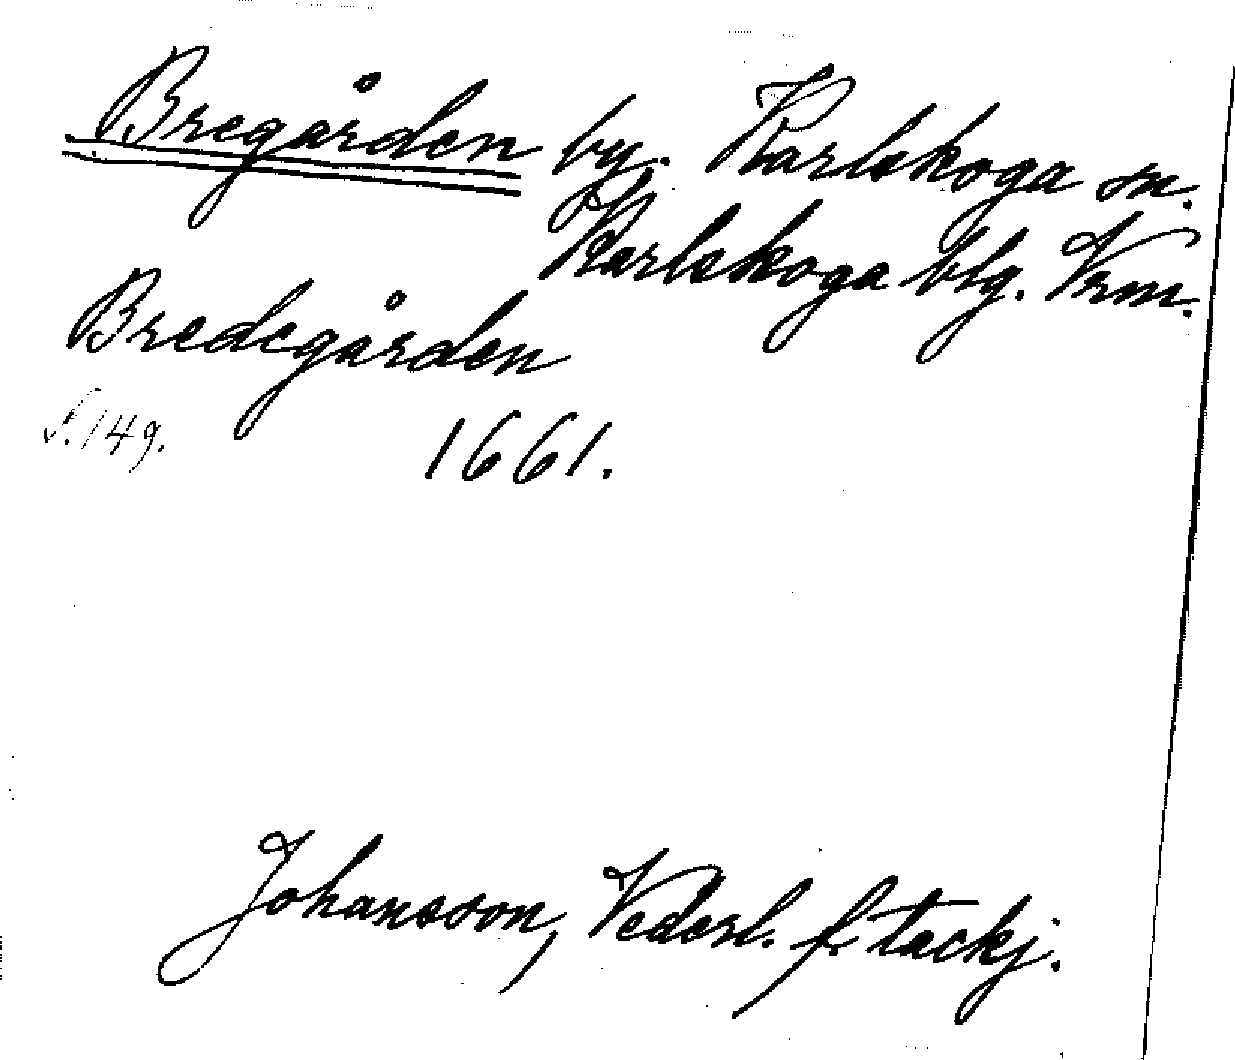 Bregården by. Karlskoga sn.
Karlskoga blg. Vrm.
Bredegården
S. 149.
1661.
Johansson, Vederl. f. tackj.